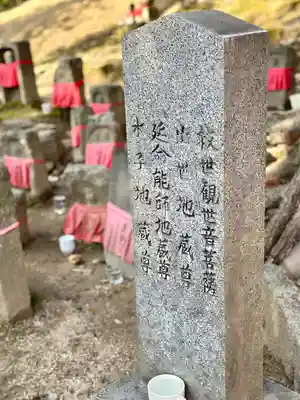 救世観世音菩薩
出世地蔵尊
延命能師地蔵尊
水子地蔵尊